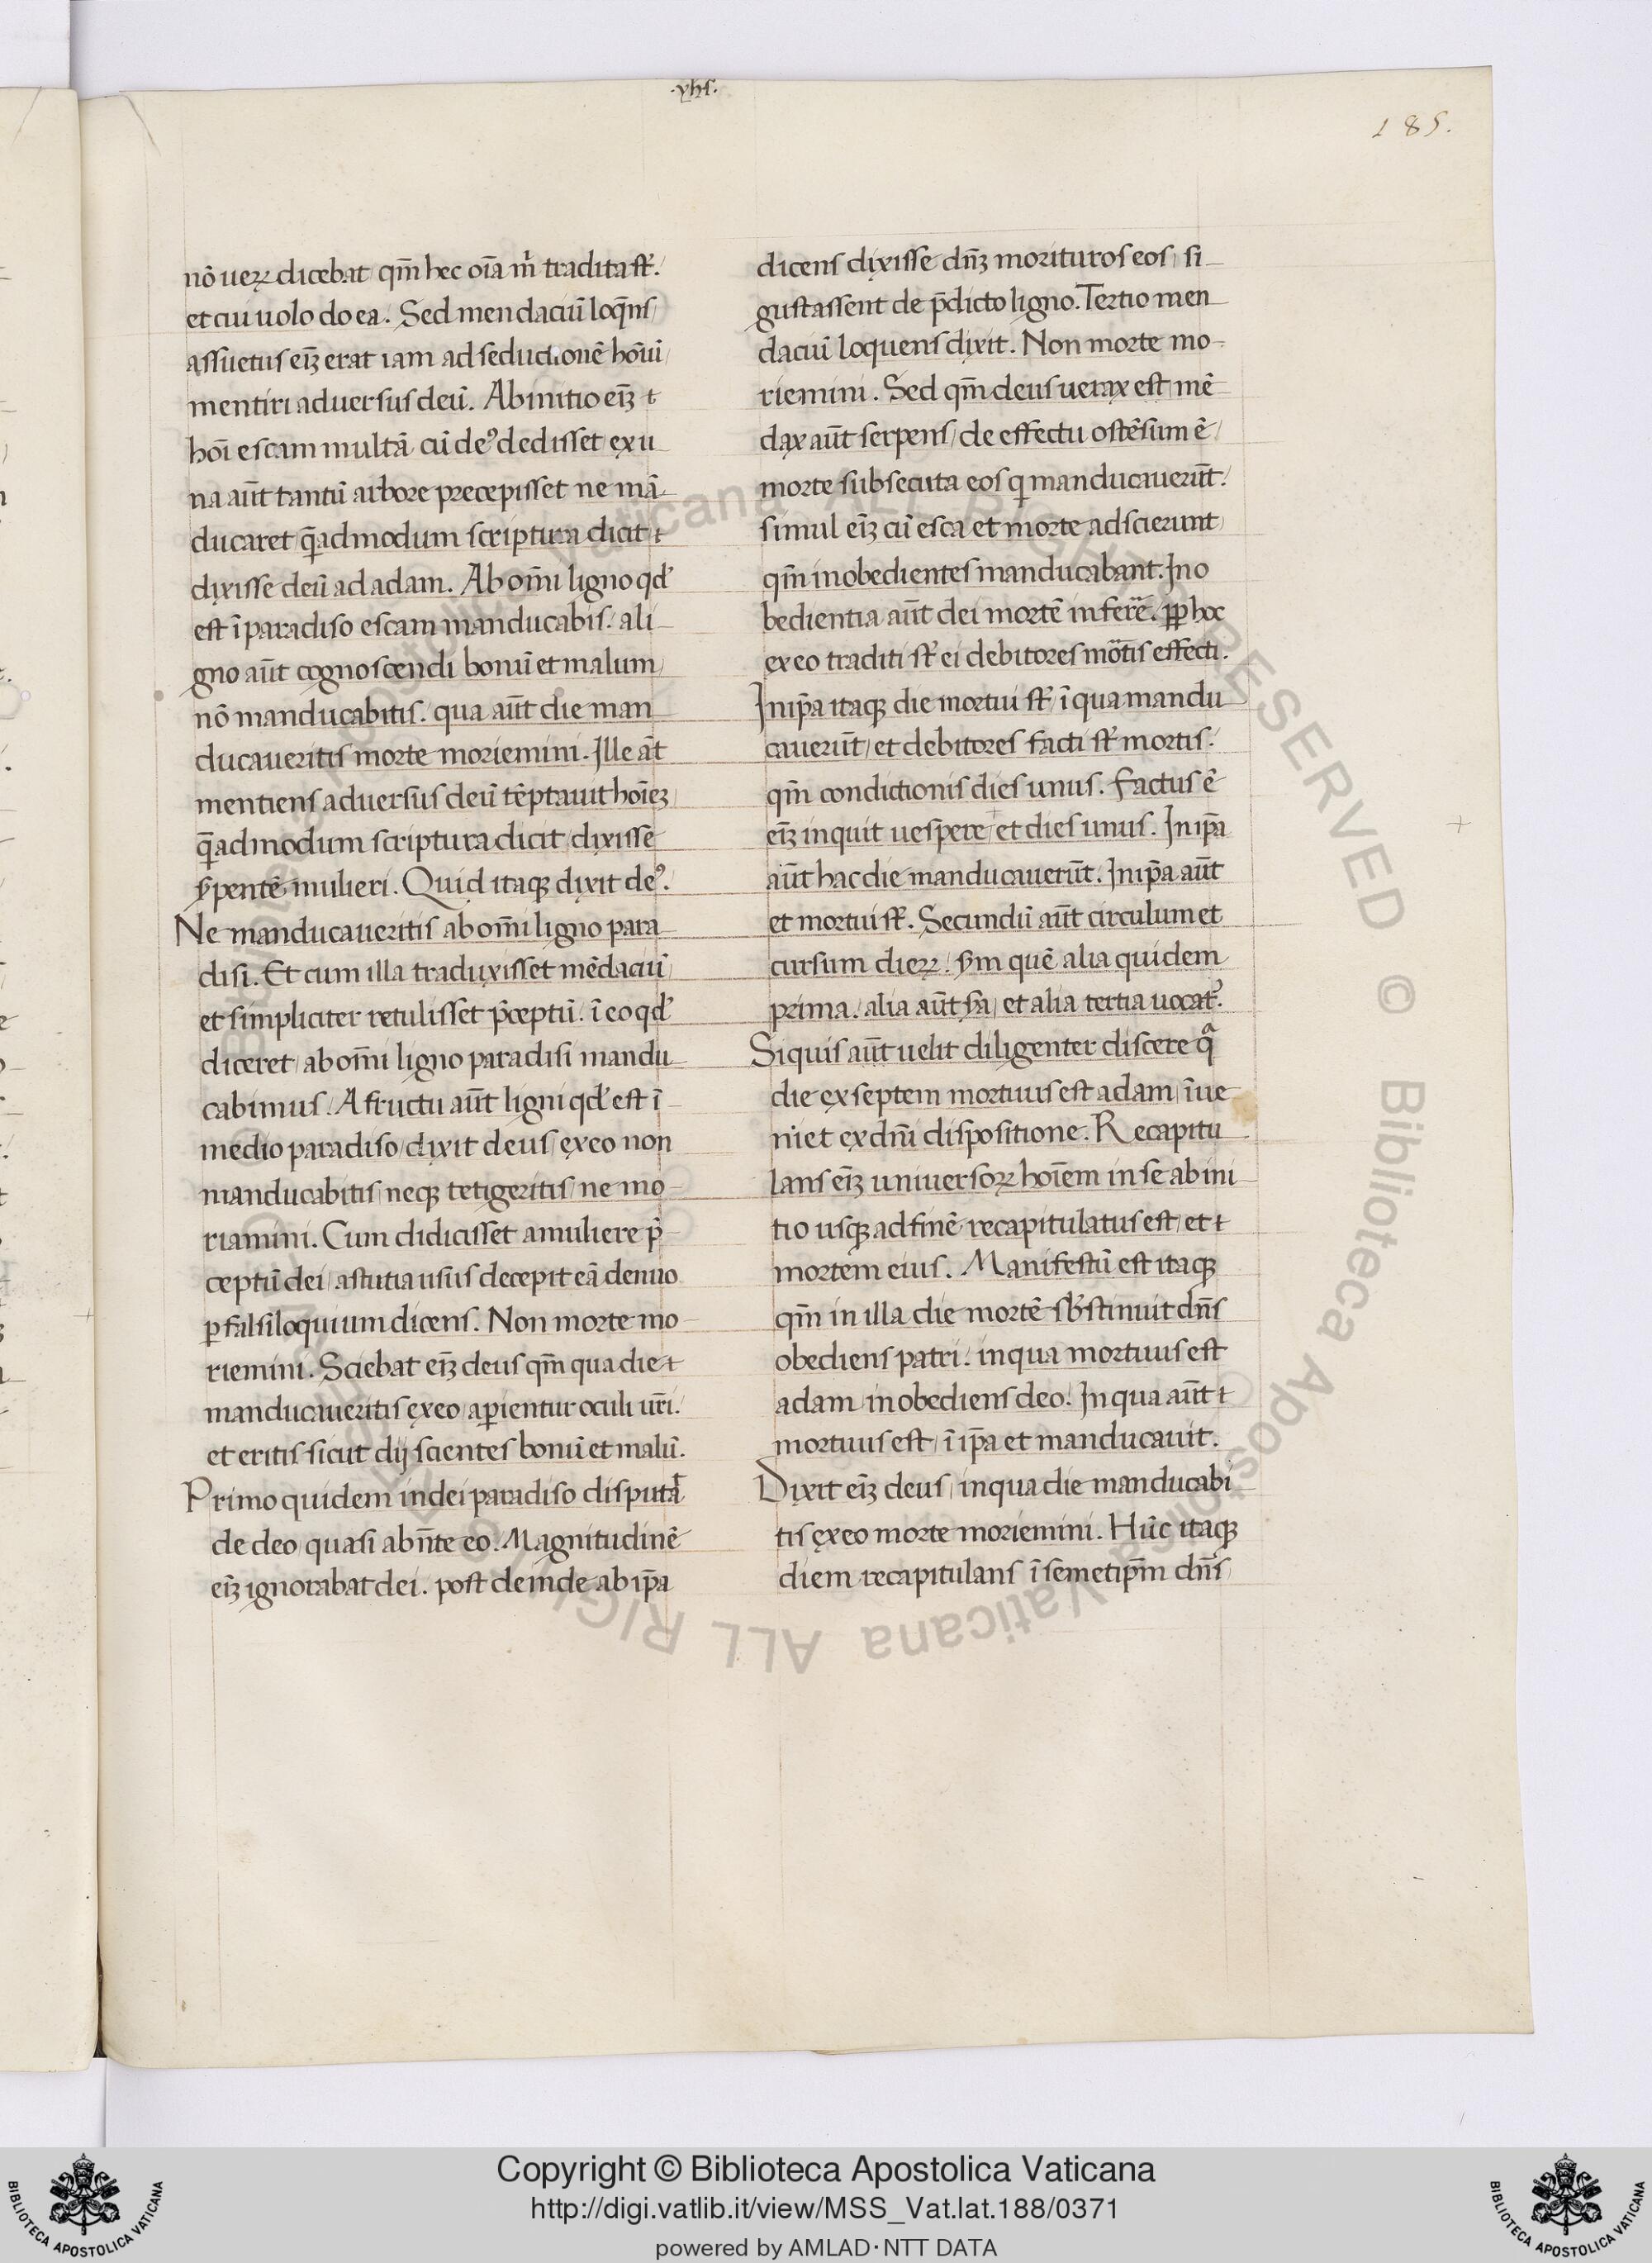 .yhs.
185.
nō ueꝝ dicebat qm̄ hec oīa m̄ tradita st̄.
et cui uolo do ea. Sed mendaciū loq̄ns
assuetus eīꝫ erat iam ad seductionē hōīū
mentiri aduersus deū. Ab initio eīꝫ
hoī escam multā cū deꝰ dedisset ex u
na aūt tantū arbore precepisset ne mā
ducaret q̄admodum scriptura dicit
dixisse deū ad adam. Ab om̄i ligno qđ
est ī paradiso escam manducabis. a li
gno aūt cognoscendi bonū et malum
nō manducabitis. qua aūt die man
ducaueritis morte moriemini. Ille aūt
mentiens aduersus deū tēptauit hoīeꝫ
q̄admodum scriptura dicit dixisse
ẜpentē mulieri. Quid itaqꝫ dixit deꝰ.
Ne manducaueritis ab om̄i ligno para
disi. Et cum illa traduxisset mēdaciū
et simpliciter retulisset p̄ceptū. ī eo qđ
diceret ab om̄i ligno paradisi mandu
cabimus. A fructu aūt ligni qđ est ī
medio paradiso dixit deus ex eo non
manducabitis neqꝫ tetigeritis ne mo
riamini. Cum didicisset a muliere p̄
ceptū dei astutia usus decepit eā denuo
ꝑ falsiloquium dicens. Non morte mo
riemini. Sciebat eīꝫ deus qm̄ qua die
manducaueritis ex eo aꝑientur oculi ur̄i.
et eritis sicut dij scientes bonū et malū.
Primo quidem in dei paradiso disputāt
de deo quasi abn̄te eo. Magnitudinē
eīꝫ ignorabat dei. post deinde ab ip̄a
dicens dixisse dn̄ꝫ morituros eos si
gustassent de p̄dicto ligno. Tertio men
daciū loquens dixit. Non morte mo
riemini. Sed qm̄ deus uerax est mē
dax aūt serpens de effectu ostēsum ē
morte subsecuta eos q manducauerūt.
simul eīꝫ cū esca et morte adscierunt
qm̄ inobedientes manducabant. Ino
bedientia aūt dei mortē infert. ꝓp hoc
ex eo traditi st̄ ei debitores mortis effecti.
In ip̄a itaqꝫ die mortui st̄ ī qua mandu
cauerūt et debitores facti st̄ mortis.
qm̄ condictionis dies unus. Factus ē
eīꝫ inquit uespere et dies unus. In ip̄a
aūt hac die manducauerūt. In ip̄a aūt
et mortui st̄. Secundū aūt circulum et
cursum dieꝝ. ẜm quē alia quidem
prima. alia aūt ẜa et alia tertia uocat᷑.
Siquis aūt uelit diligenter discere qͣ
die ex septem mortuus est adam īue
niet ex dn̄i dispositione. Recapitu
lans eīꝫ uniuersoꝝ hoīem in se ab ini
tio usqꝫ ad finē recapitulatus est et
mortem eius. Manifestū est itaqꝫ
qm̄ in illa die mortē sƀstinuit dn̄s
obediens patri. in qua mortuus est
adam inobediens deo. In qua aūt
mortuus est ī ip̄a et manducauit.
Dixit eīꝫ deus in qua die manducabi
tis ex eo morte moriemini. Hūc itaqꝫ
diem recapitulans ī semetip̄m dn̄s
Copyright © Biblioteca Apostolica Vaticana
http://digi.vatlib.it/view/MSS_Vat.lat.188/0371
powered by AMLAD·NTT DATA
BIBLIOTECA APOSTOLICA VATICANA
BIBLIOTECA APOSTOLICA VATICANA